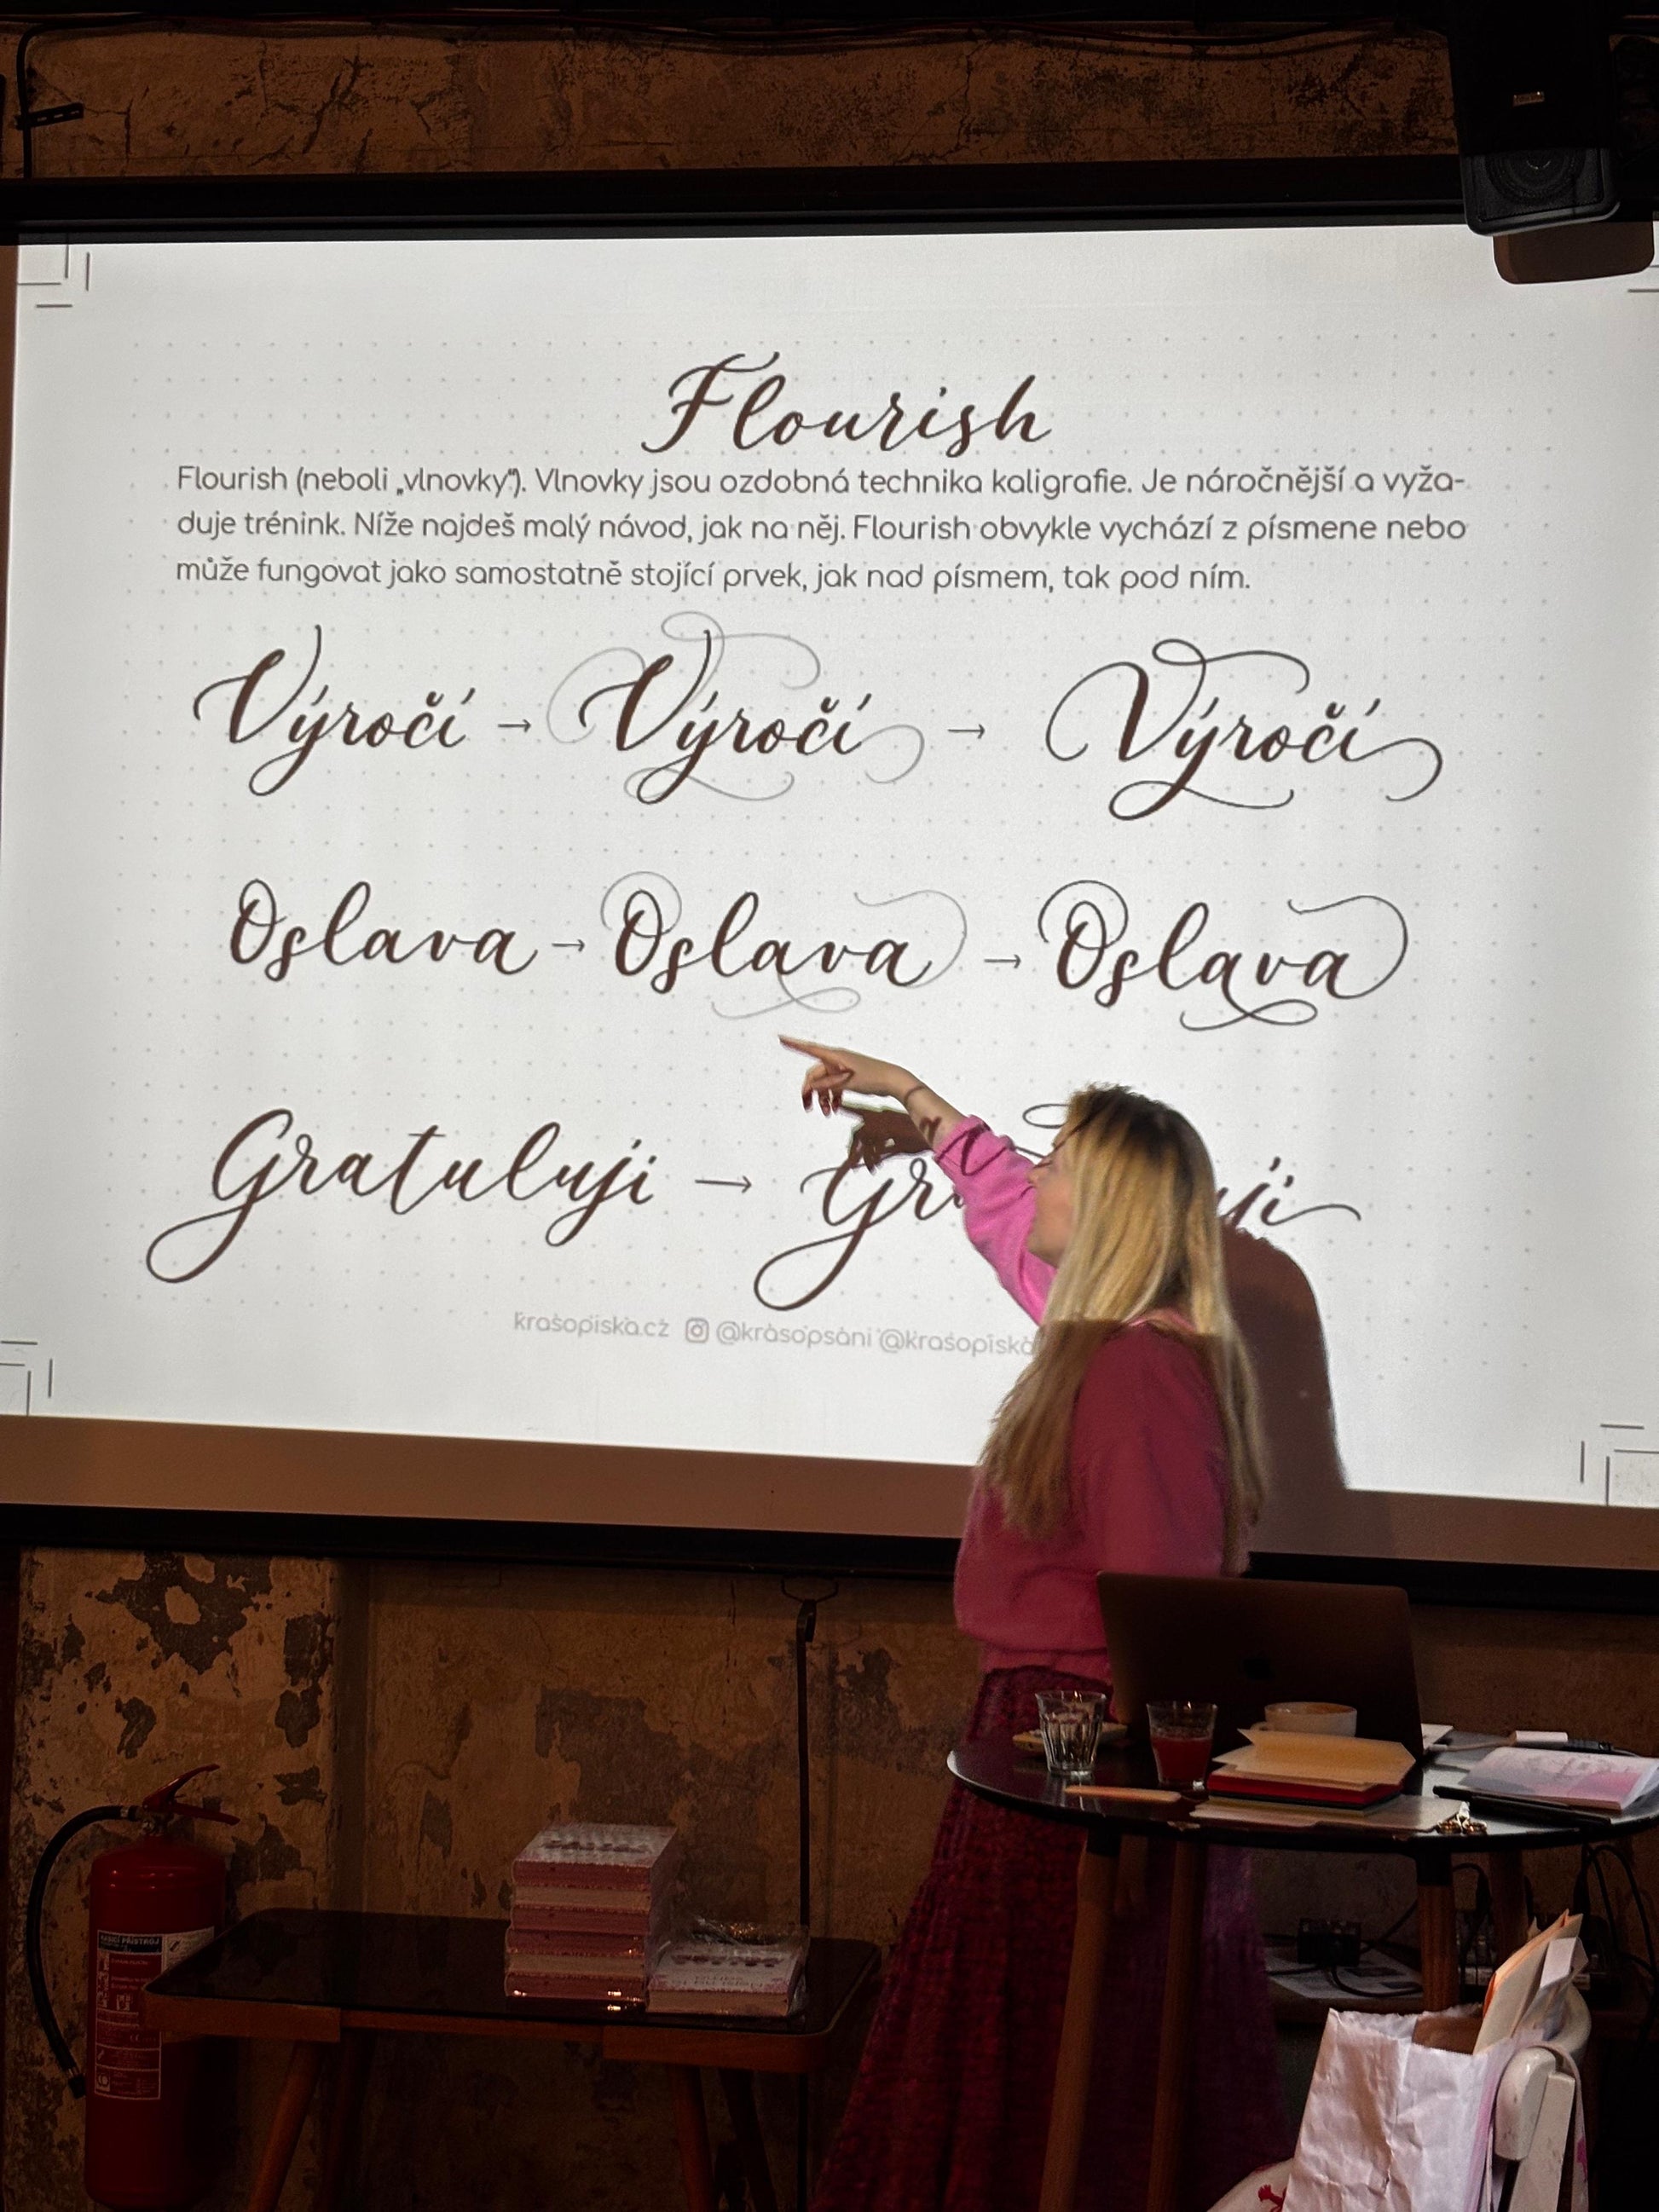 Flourish
Flourish (neboli „vlnovky“). Vlnovky jsou ozdobná technika kaligrafie. Je náročnější a vyža-
duje trénink. Níže najdeš malý návod, jak na něj. Flourish obvykle vychází z písmene nebo
může fungovat jako samostatně stojící prvek, jak nad písmem, tak pod ním.
Výročí → Výročí → Výročí
Oslava → Oslava → Oslava
Gratuluji → Gr uji
krasopiska.cz @krasopsani @krasopiska
HASICÍ PŘÍSTROJ